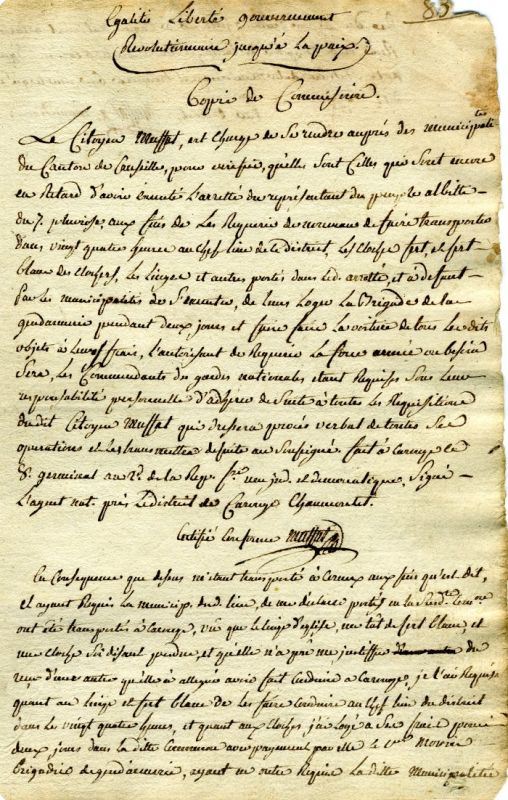 83
Egalité Liberté gouvernement
Revolutionnaire jusqu'à La paix.
Copie de Commission.
Le Citoyen Muffat, est Chargé de Se rendre auprés des municipalités
du Canton de Cruseille, pour verifié, qu'elles Sont Celles qui Seront encore
en Retard d'avoir éxecuté L'arretté du représentant du peuple albitte
du 7. pluviose, aux fins de Les Requerir de nouveau de faire transporter
dans vingt quatre heures au Chef lieu de Ce district, Les Cloches fert, et fert
blanc des Clochers, Les Linges et autres portés dans Led. arretté, et à defaut
Par Les municipalités de S'executer, de Leurs Loger La Brigade de La
gendarmerie pendant deux jours et faire faire La voiture de tous Les dits
objets à Leurs frais, L'autorisant de Requerir La force armée ou besoin
Sera, Les Commandants des gardes nationales etant Requises Sous Leur
responsabilité personnelle d'adherer de Suite à toutes Les Requisitions
dudit Citoyen Muffat qui dressera procés verbal de toutes Ses
operations et Les transmettra desuite au Soussigné. fait à Carouge Le
8. germinal an 2d. de la Repp. fse. une ind. et democratique, Signé
L'agent nat. prés Le district de Carouge Chaumontet.
Certifié Conforme Muffat
En Consequence que dessus m'étant transporté à aux fins qu'est dit,
et ayant Requis La municip. dud. Lieu, de me declarer portés en La
ont été transportés à Carouge, vû que Le linge d'eglise, un tas de fert blanc, et
une Cloche Soi disant perdue, et qu'elle n'a pû me justiffié du
reçu d'une autre qu'elle à allegué avoir fait Conduire à Carouge, je L'ai Requise
quant au Linge et fert blanc de Les faire Conduire au Chef Lieu du district
dans Les vingt quatre heures, et quant aux Cloches, j'ai Logé à Ses frais pour
deux jours dans La ditte Commune avec payement par elle Le
Brigadié de gendarmerie, ayant en outre Requis La ditte Municipalité